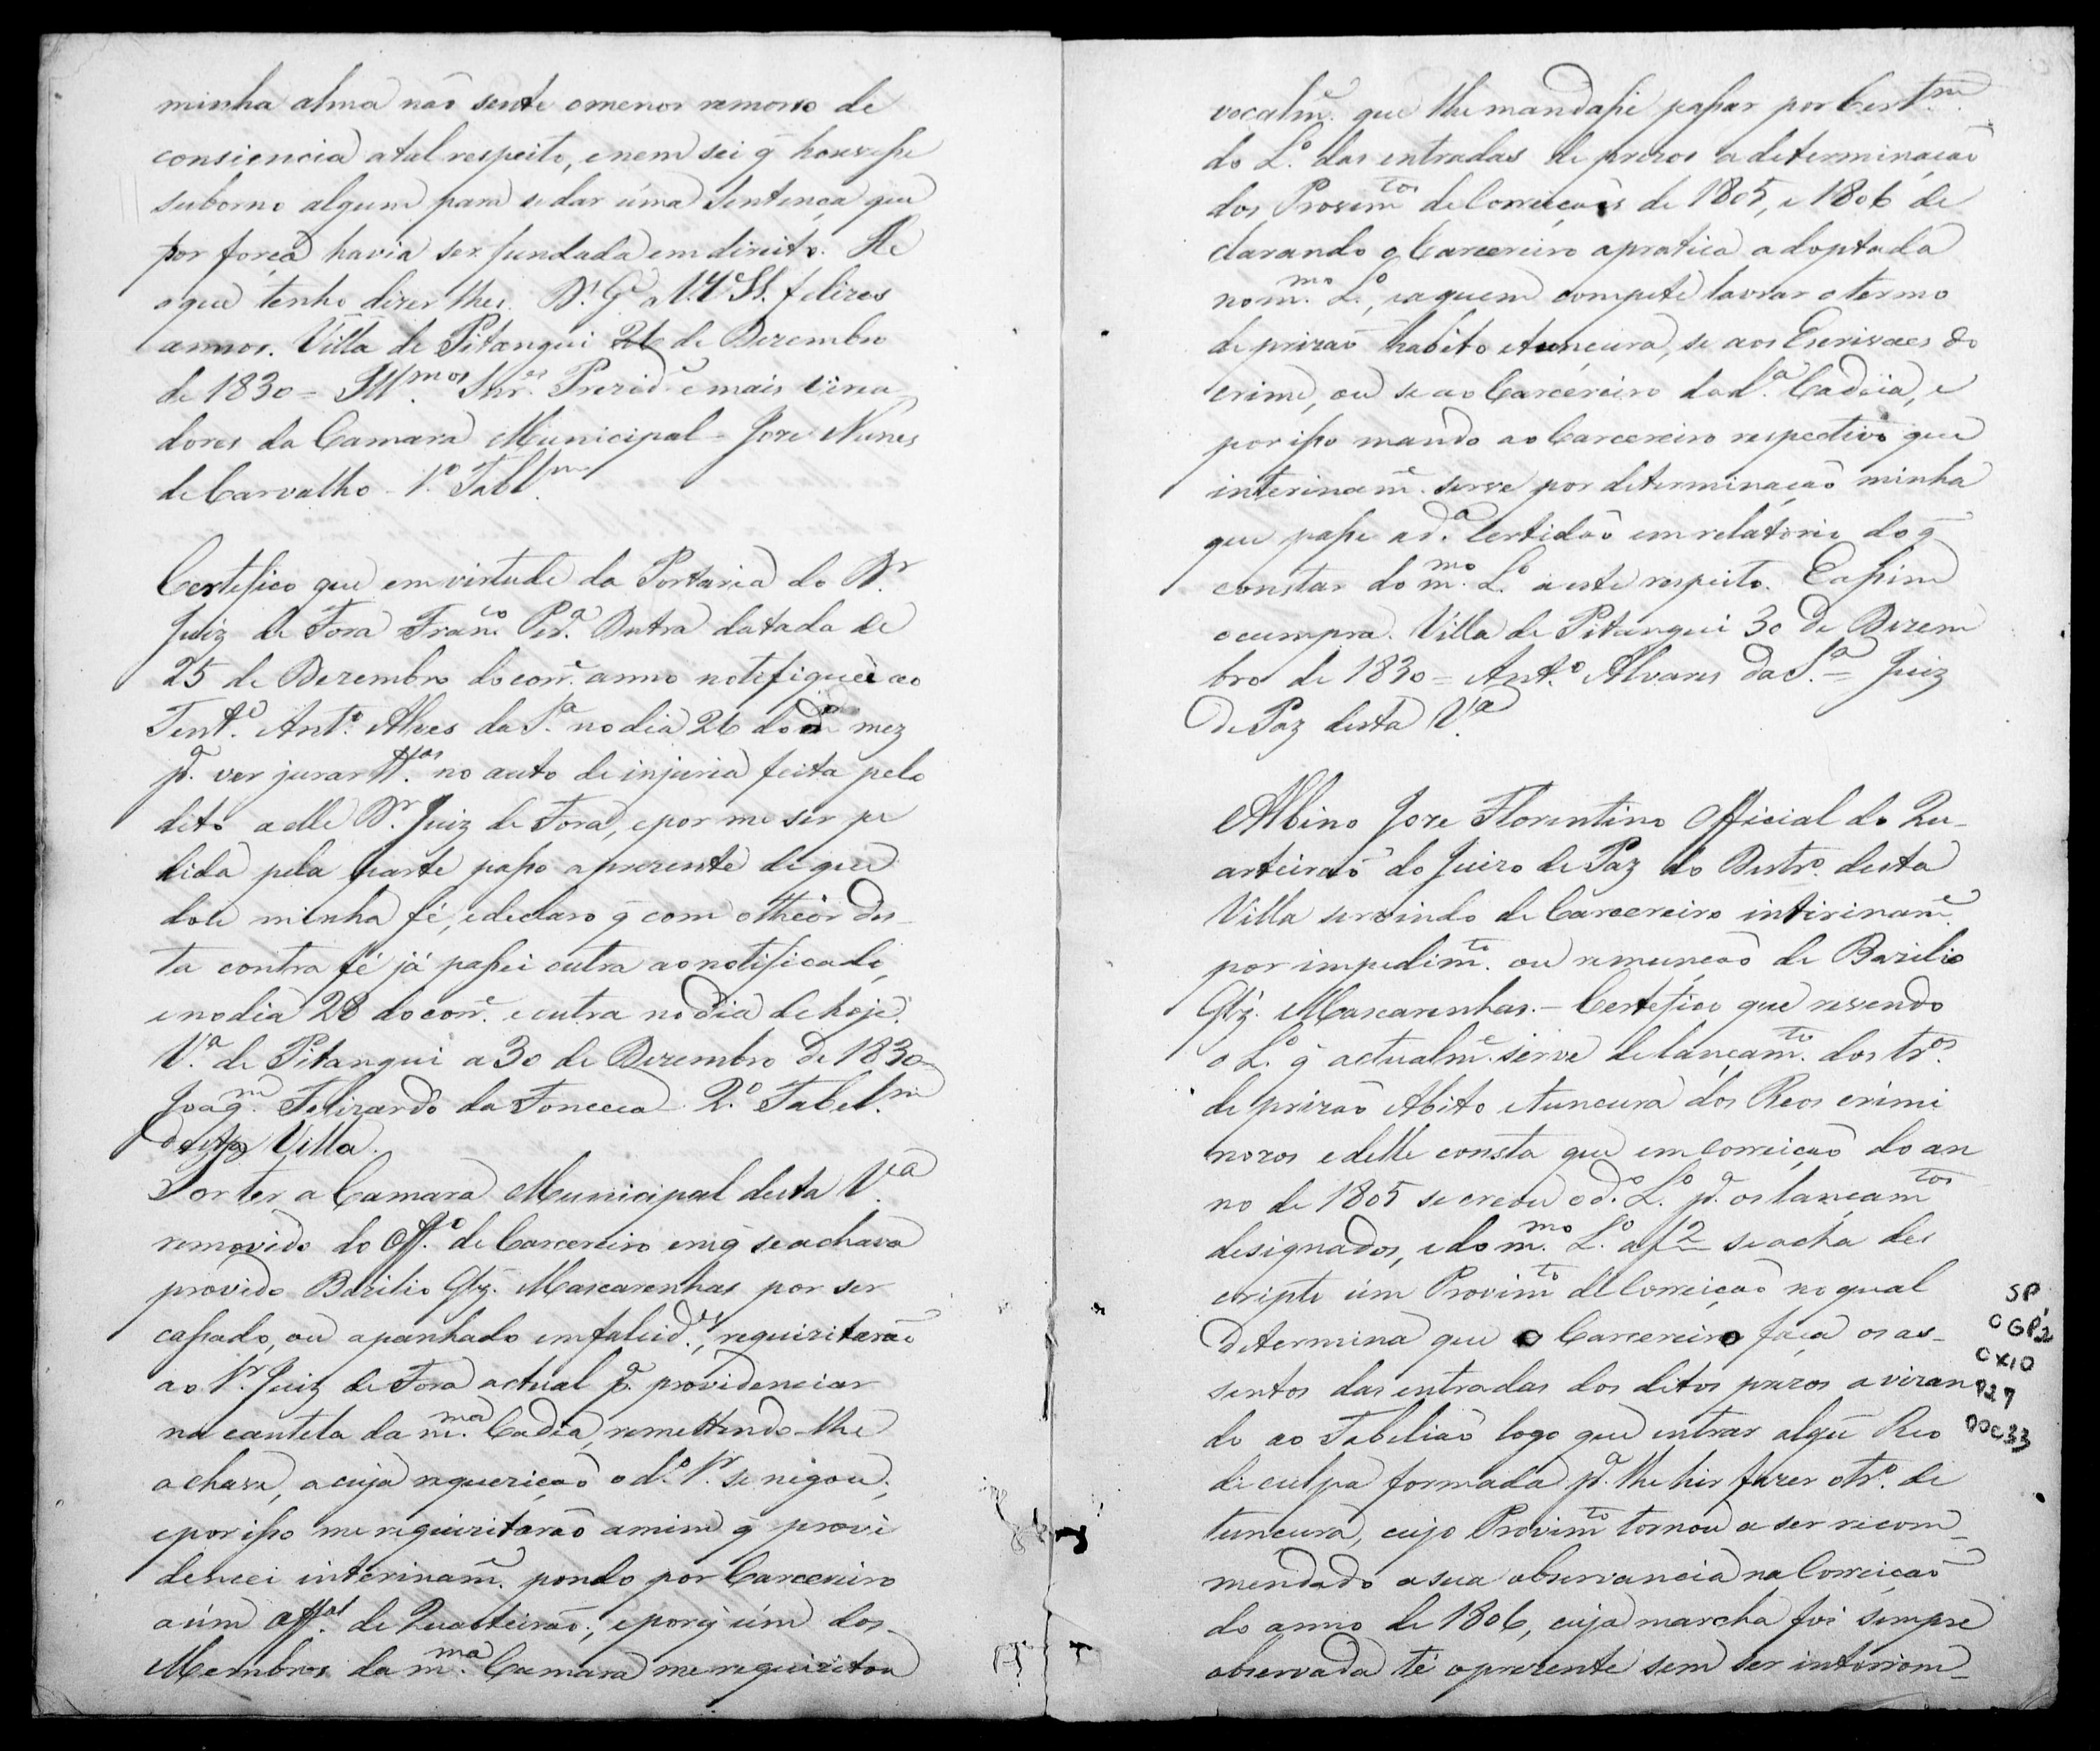 minha alma não sente omenor remorso de
consiencia atal respeito, enem sei q̃ houvesse
suborno algum para se dar uma Sentença que
por força havia ser fundada em direito. He
oque tenho dizer lhes. D.s G.e a V.V. S.S. felizes
annos. Villa de Pitangui 26 de Dezembro
de 1830 = Ill.mos Snr.es Prezid.e e mais Verea
dores da Camara Municipal = Joze Nunes
de Carvalho - 1.o Tabl.m
Certefico que em virtude da Portaria do D.r
Juiz de Fora Fran.co Per.a Dutra datada de
25 de Dezembro do corr.e anno notifiquei ao
Tent.e Ant.o Alves da S.a no dia 26 do d.o mez
p.a ver jurar tt.as no auto de injuria feita pelo
dito a elle D.r Juiz de Fora, epor me ser pe
dida pela parte passo aprezente de que
dou minha fé, edeclaro q̃ com otheor des
ta contra fé já passei outra ao notificado,
enodia 28 do corr.e eoutra no dia de hoje.
V.a de Pitangui a 30 de Dezembro de 1830=
Joaq.m Felizardo da Fonceca 2.o Tabel.m
desta Villa.
Por ter a Camara Municipal desta V.a
removido do Off.o de Carcereiro emq̃ se achava
provido Bazilio Glz̃. Mascarenhas por ser
cassado, ou apanhado em falcid.es, requizitarão
ao D.r Juiz de Fora actual p.a providenciar
na cautela da m.ma Cadea, remettendo-lhe
a chave, acuja requezição o d.o D.r se negou;
epor isso me requizitarão amim q̃ provi
denciei interinam.e pondo por Carcereiro
a úm Off.al de Quarteirão; eporq̃ úm dos
Membros da m.ma Camara me requizitou
vocalm.e que lhe mandasse passar por Cert.m
do L.o das entradas de prezos a determinação
dos Provim.tos de Correiçoes de 1805, e 1806 de
clarando o Carcereiro apratica adoptada
no m.mo L.o, eaquem compete lavrar otermo
de prizão habito etuncura, se aos Escrivaes do
crime, ou se ao Carcereiro da d.a Cadeia, e
por isso mando ao Carcereiro respectivo que
interinam.e serve por determinação minha
que passe a d.a Certidão em relatorio do q̃
constar do m.mo L.o a este respeito. Eassim
ocumpra. Villa de Pitangui 30 de Dezem
bro de 1830 = Ant.o Alvares da S.a = Juiz
de Paz desta V.a
Albino Joze Florentino Official do Qu-
arteirão do Juizo de Paz do Distr.o desta
Villa servindo de Carcereiro intirinam.e
por impedim.to ou remunção de Bazilio
Glz̃. Mascarenhas. - Certefico que revendo
o L.o q̃ actualm.e serve de lançam.to dos tr.os
de prizão Abito etuncura dos Reos crimi
nozos edelle consta que em Correição do an
no de 1805 se creou o d.o L.o p.a os lançam.tos
designados, edo m.mo L.o a f 2 se acha des
cripto úm Provim.to de Correição no qual
determina que o Carcereiro faça os as-
sentos das entradas dos ditos prezos avizan
do ao Tabelião logo que entrar algũ Reo
de culpa formada p.a lhe hir fazer otr.o de
tuncura, cujo Provim.to tornou a ser recom-
mendado asua observancia na Correição
do anno de 1806, cuja marcha foi sempre
observada té oprezente sem ser interrom-
SP
CGP,2
CX10
P27
DOC33